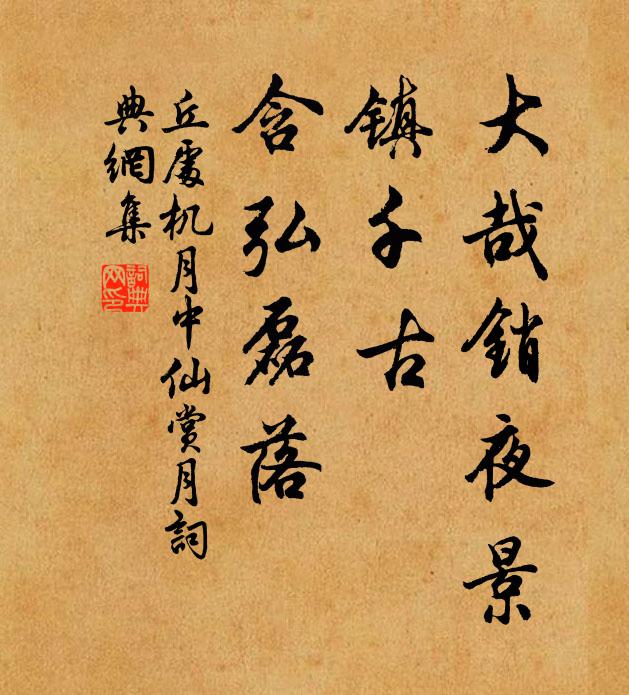 大哉銷夜景
镇千古
含弘磊落
丘處机月中仙赏月詞
典網集
詞典网印